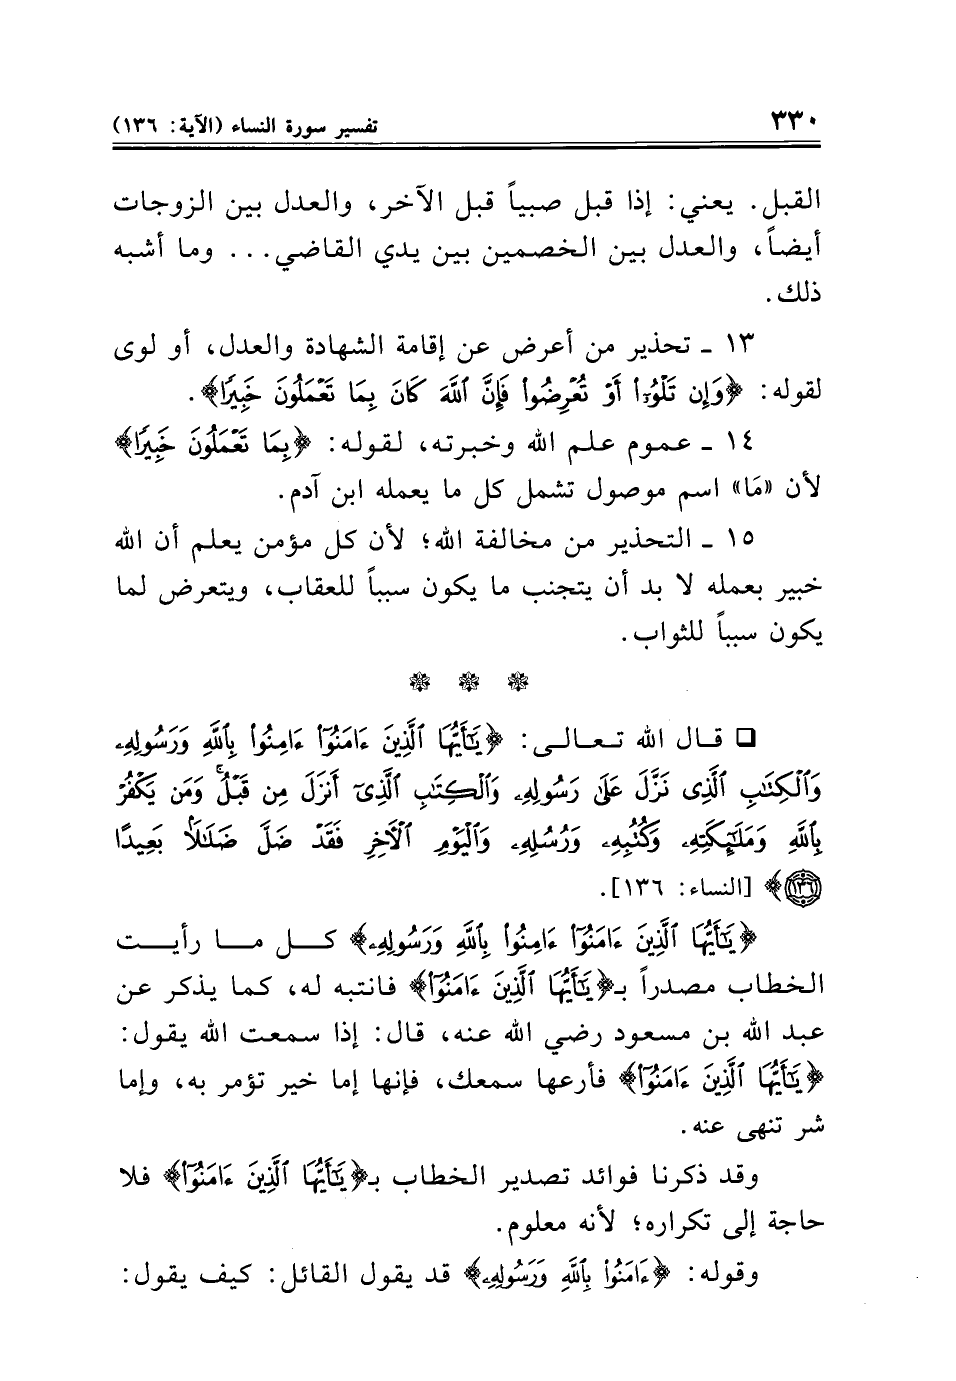 ٣٣٠
تفسير سورة النساء (الآية: ١٣٦)
القبل. يعني: إذا قبل صبياً قبل الآخر، والعدل بين الزوجات
أيضاً، والعدل بين الخصمين بين يدي القاضي... وما أشبه
ذلك.
١٣ ـ تحذير من أعرض عن إقامة الشهادة والعدل، أو لوى
لقوله: ﴿وَإِن تَلْوُۥٓا۟ أَوْ تُعْرِضُوا۟ فَإِنَّ ٱللَّهَ كَانَ بِمَا تَعْمَلُونَ خَبِيرًا﴾.
١٤ ـ عموم علم الله وخبرته، لقوله: ﴿بِمَا تَعْمَلُونَ خَبِيرًا﴾
لأن «مَا» اسم موصول تشمل كل ما يعمله ابن آدم.
١٥ ـ التحذير من مخالفة الله؛ لأن كل مؤمن يعلم أن الله
خبير بعمله لا بد أن يتجنب ما يكون سبباً للعقاب، ويتعرض لما
يكون سبباً للثواب.
❁ ❁ ❁
❑ قال الله تعالى: ﴿يَـٰٓأَيُّهَا ٱلَّذِينَ ءَامَنُوٓا۟ ءَامِنُوا۟ بِٱللَّهِ وَرَسُولِهِۦ
وَٱلْكِتَـٰبِ ٱلَّذِى نَزَّلَ عَلَىٰ رَسُولِهِۦ وَٱلْكِتَـٰبِ ٱلَّذِىٓ أَنزَلَ مِن قَبْلُ ۚ وَمَن يَكْفُرْ
بِٱللَّهِ وَمَلَـٰٓئِكَتِهِۦ وَكُتُبِهِۦ وَرُسُلِهِۦ وَٱلْيَوْمِ ٱلْـَٔاخِرِ فَقَدْ ضَلَّ ضَلَـٰلًۢا بَعِيدًا
(١٣٦)﴾ [النساء: ١٣٦].
﴿يَـٰٓأَيُّهَا ٱلَّذِينَ ءَامَنُوٓا۟ ءَامِنُوا۟ بِٱللَّهِ وَرَسُولِهِۦ﴾ كل ما رأيت
الخطاب مصدراً بـ﴿يَـٰٓأَيُّهَا ٱلَّذِينَ ءَامَنُوٓا۟﴾ فانتبه له، كما يذكر عن
عبد الله بن مسعود رضي الله عنه، قال: إذا سمعت الله يقول:
﴿يَـٰٓأَيُّهَا ٱلَّذِينَ ءَامَنُوٓا۟﴾ فأرعها سمعك، فإنها إما خير تؤمر به، وإما
شر تنهى عنه.
وقد ذكرنا فوائد تصدير الخطاب بـ﴿يَـٰٓأَيُّهَا ٱلَّذِينَ ءَامَنُوٓا۟﴾ فلا
حاجة إلى تكراره؛ لأنه معلوم.
وقوله: ﴿ءَامَنُوا۟ بِٱللَّهِ وَرَسُولِهِۦ﴾ قد يقول القائل: كيف يقول: